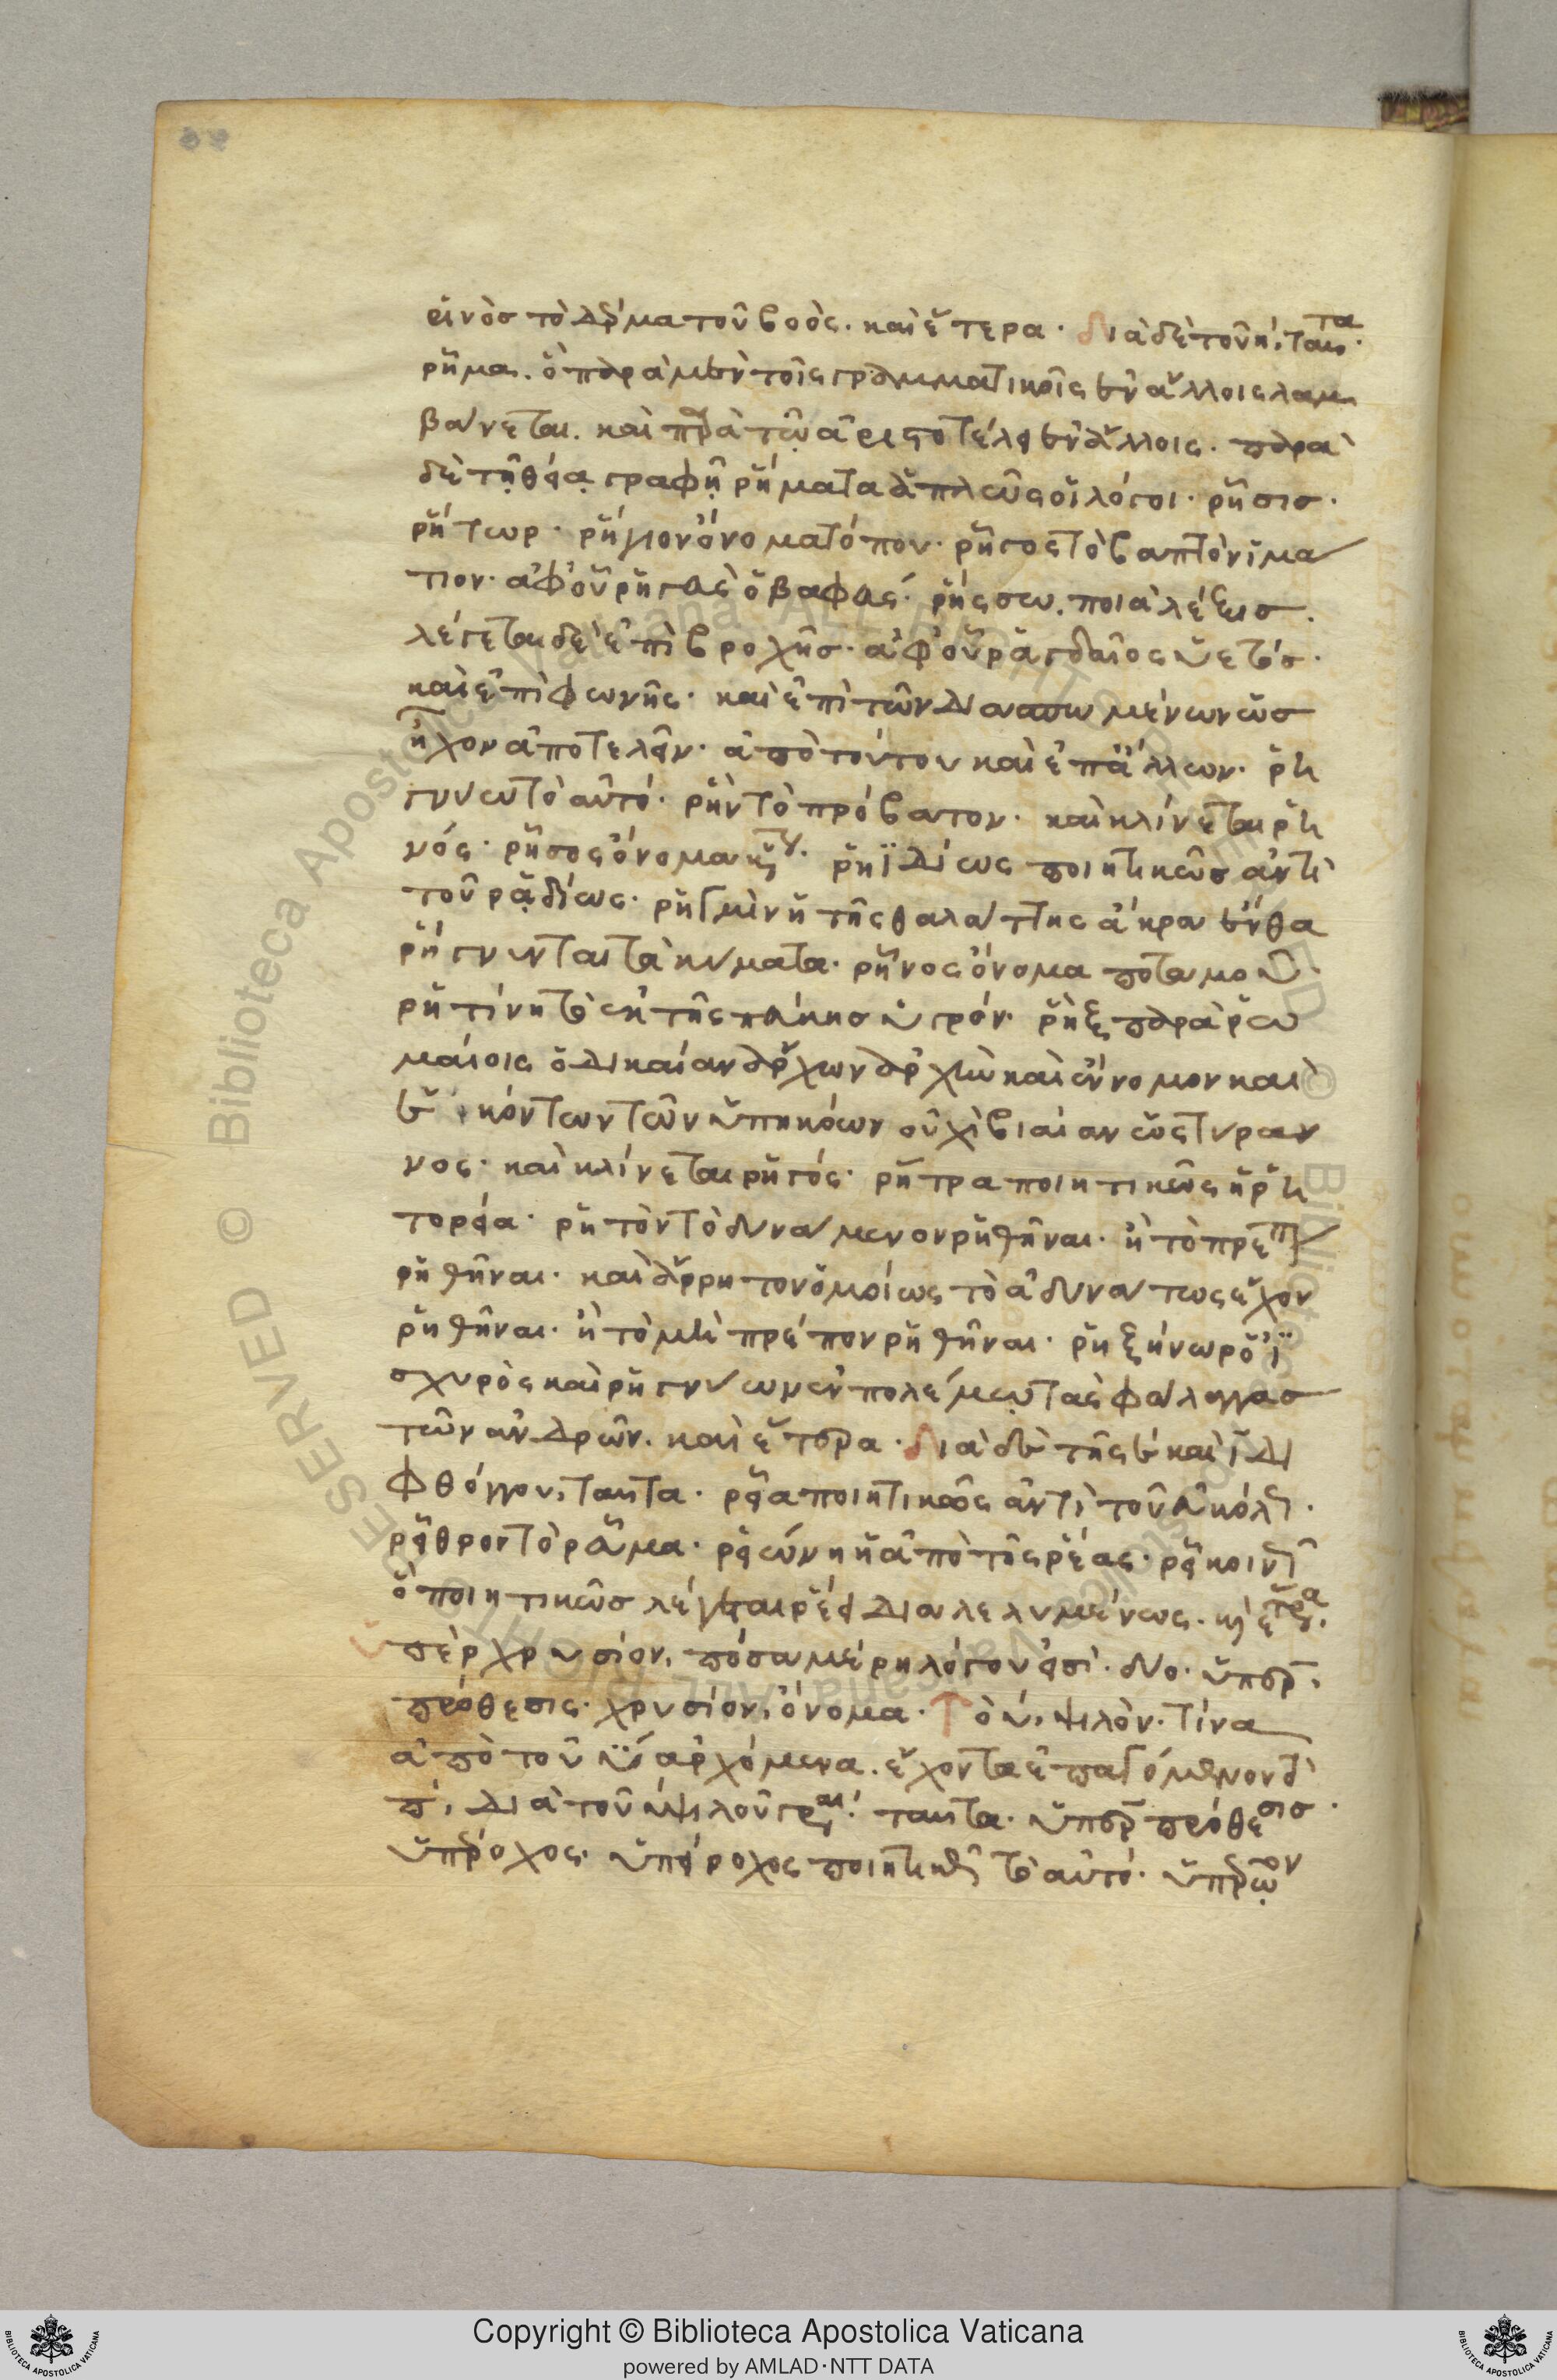 εινὸσ τὸ δέρμα τοῦ βοός. καὶ ἕτερα. διὰ δὲ τοῦ η, ταῦτα.
ῥῆμα. ὃ παρὰ μὲν τοῖς γραμματικοῖς ἐν ἄλλοις λαμ
βάνεται. καὶ παρὰ τῷ ἀριστοτέλει ἐν ἄλλοις. παρὰ
δὲ τῇ θείᾳ γραφῇ ῥήματα ἁπλῶς οἱ λόγοι. ῥῆσισ.
ῥήτωρ. ῥήγιον ὄνομα τόπου. ῥῆγος τὸ βαπτὸν ἱμά
τιον. ἀφ' οὗ ῥηγεὺς ὁ βαφεύς. ῥήσσω. ποιὰ λέξισ.
λέγεται δὲ ἐπὶ βροχῆσ. ἀφ' οὗ ῥαγδαῖος ὑετόσ.
καὶ ἐπὶ φωνῆς. καὶ ἐπὶ τῶν μένων ὡσ
ἦχον ἀποτελεῖν. ἀπὸ τούτου καὶ ἐπ' ἄλλων. ῥη
γνύω τὸ αὐτό. ῥὴν τὸ πρόβατον. καὶ κλίνεται ῥη
νός. ῥῆσος ὄνομα κύριον. ῥηϊδίως ποιητικῶσ ἀντὶ
τοῦ ῥᾳδίως. ῥηγμὶν ἡ τῆς θαλάττης ἄκρα ἔνθα
ῥήγνυνται τὰ κύματα. ῥῆνος ὄνομα ποταμοῦ.
ῥητίνη τὸ ἐκ τῆς πεύκησ ὑγρόν. ῥὴξ παρὰ ῥω
μαίοις ὁ δικαίαν ἄρχων ἀρχὴν καὶ ἔννομον καὶ
ἑκόντων τῶν ὑπηκόων οὐχὶ βιαίαν ὡς τύραν
νος. καὶ κλίνεται ῥηγός. ῥήτρα ποιητικῶς ἡ ῥη
τορεία. ῥητὸν τὸ δυνάμενον ῥηθῆναι. ἢ τὸ πρέπον
ῥηθῆναι. καὶ ἄρρητον ὁμοίως τὸ ἀδυνάτως ἔχον
ῥηθῆναι. ἢ τὸ μὴ πρέπον ῥηθῆναι. ῥηξήνωρ ὁ ἰ
σχυρὸς καὶ ῥηγνύων ἐν πολέμῳ τὰς φάλαγγασ
τῶν ἀνδρῶν. καὶ ἕτερα. διὰ δὲ τῆς ε καὶ ϊ δι
φθόγγου, ταῦτα. ῥεῖα ποιητικῶς ἀντὶ τοῦ εὐκόλως.
ῥεῖθρον τὸ ῥεῦμα. ῥειώνη ἡ ἀπὸ τῆς ῥέας. ῥεῖ κοινῶς
ὃ ποιητικῶσ λέγεται ῥέει διαλελυμένως. καὶ ἕτερα.
ὑπὲρ χρυσίον, πόσα μέρη λόγου εἰσί. δύο. ὑπὲρ,
πρόθεσις. χρυσίον, ὄνομα. τὸ υ, ψιλόν. τίνα
ἀπὸ τοῦ ϋ ἀρχόμενα. ἔχοντα ἐπαγόμενον τὸ
π, διὰ τοῦ υ ψιλοῦ γράφεται. ταῦτα. ὑπὲρ πρόθεσισ.
ὑπέροχος. ὑπείροχος ποιητικῶς τὸ αὐτό. ὑπερῷον
Copyright © Biblioteca Apostolica Vaticana
powered by AMLAD·NTT DATA